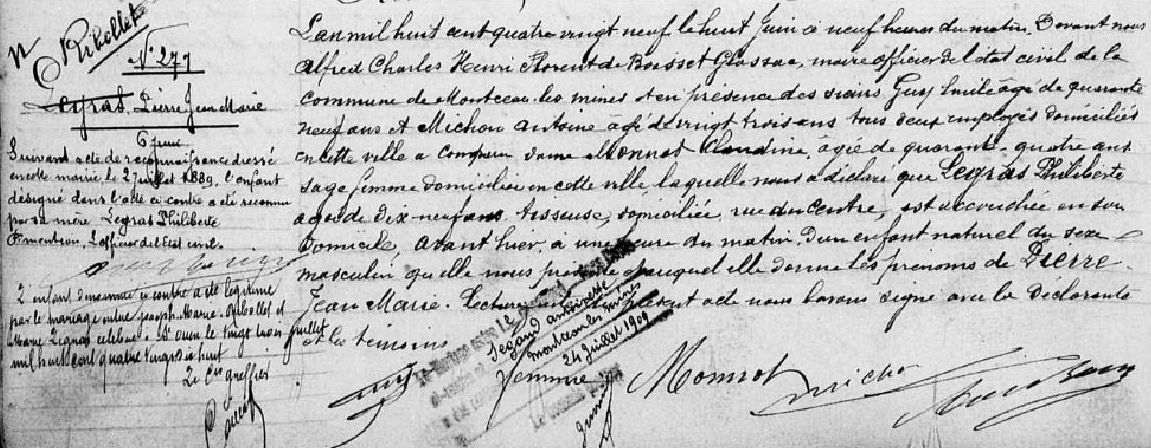 Ribollet
N° 277
Legras Pierre Jean Marie
6 juin
Suivant acte de reconnaissance dressé
en cette mairie le 2 juillet 1889, l'enfant
désigné dans l'acte ci contre a été reconnu
par sa mère Legras Philiberte
L'officier de l'Etat civil.
L'enfant dénommé ci contre a été légitimé
par le mariage entre Joseph Marie Ribollet et
Marie Legras célébré à St Ouen le vingt trois juillet
mil huit cent quatre vingt dix huit
Le Cis greffier
L'an mil huit cent quatre vingt neuf le huit Juin à neuf heures du matin. Devant nous
Alfred Charles Henri Florent de Boisset Glassac, maire officier de l'état civil de la
Commune de Montceau-les-mines et en présence des sieurs Guy Emile âgé de quarante
neuf ans et Michon Antoine âgé de vingt trois ans tous deux employés domiciliés
en cette ville a comparu dame Monnot Claudine, âgée de quarante-quatre ans
sage femme domiciliée en cette ville laquelle nous a déclaré que Legras Philiberte
agée de dix-neuf ans tisseuse, domiciliée, rue du Centre, est accouchée en son
Domicile, avant hier, à une heure du matin d'un enfant naturel du sexe
masculin qu'elle nous présente et auquel elle donne les prénoms de Pierre
Jean Marie. Lecture faite du présent acte nous l'avons signé avec la déclarante
et les témoins
Segaud Antoinette
Montceau les mines
24 Juillet 1909
femme Monnot